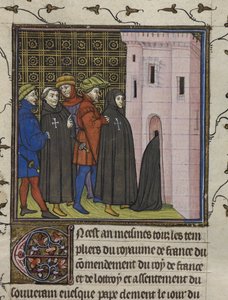 EN cest an meismes touz les tem
pliers du royaume de france du
commendement du roy de france
et de lottroy et assentement du
souuerain euesque pape clement le iour du